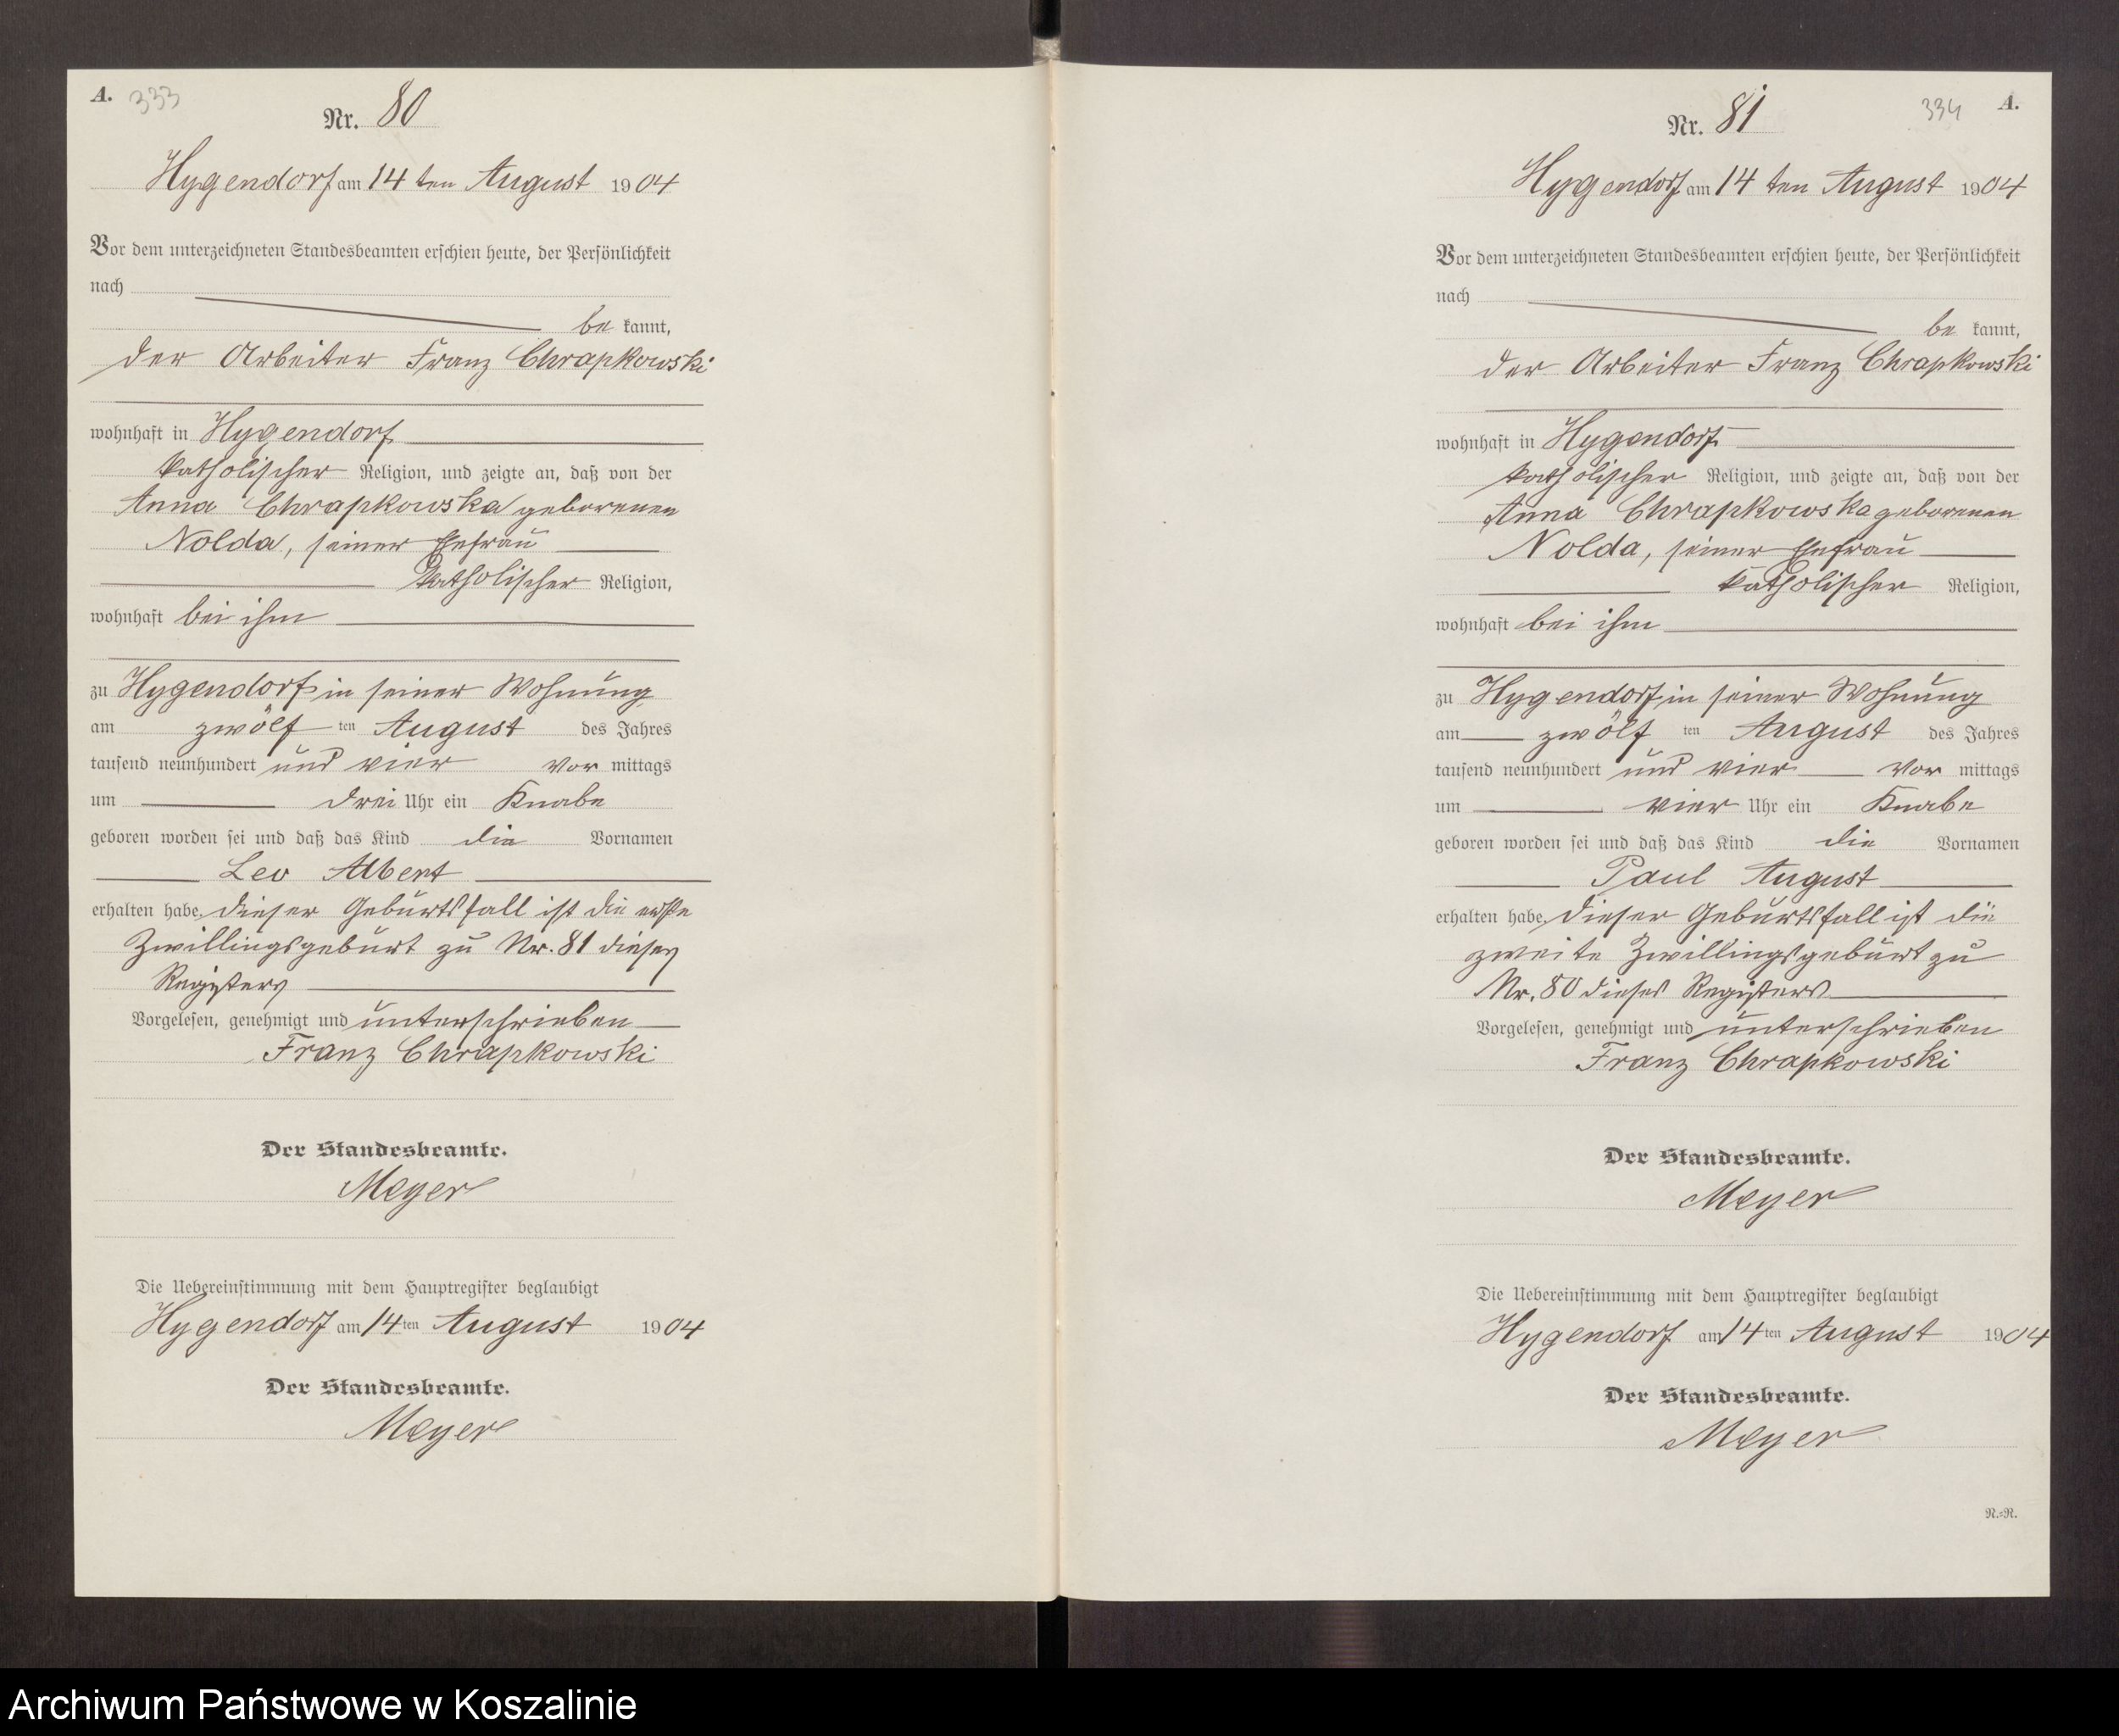 A. 333
Nr. 80
Hygendorf am 14 ten August 1904
Vor dem unterzeichneten Standesbeamten erschien heute, der Persönlichkeit
nach
be kannt,
der Arbeiter Franz Chrapkowski
wohnhaft in Hygendorf
katholischer Religion, und zeigte an, daß von der
Anna Chrapkowska geborenen
Nolda, seiner Ehefrau
katholischer Religion,
wohnhaft bei ihm
zu Hygendorf in seiner Wohnung
am zwölf ten August des Jahres
tausend neunhundert und vier vor mittags
um drei Uhr ein Knabe
geboren worden sei und daß das Kind die Vornamen
Leo Albert
erhalten habe. dieser Geburtsfall ist die erste
Zwillingsgeburt zu Nr. 81 dieses
Registers
Vorgelesen, genehmigt und unterschrieben
Franz Chrapkowski
Der Standesbeamte.
Meyer
Die Uebereinstimmung mit dem Hauptregister beglaubigt
Hygendorf am 14 ten August 1904
Der Standesbeamte.
Meyer
334 A.
Nr. 81
Hygendorf am 14 ten August 1904
Vor dem unterzeichneten Standesbeamten erschien heute, der Persönlichkeit
nach
be kannt,
der Arbeiter Franz Chrapkowski
wohnhaft in Hygendorf
katholischer Religion, und zeigte an, daß von der
Anna Chrapkowska geborenen
Nolda, seiner Ehefrau
katholischer Religion,
wohnhaft bei ihm
zu Hygendorf in seiner Wohnung
am zwölf ten August des Jahres
tausend neunhundert und vier vor mittags
um vier Uhr ein Knabe
geboren worden sei und daß das Kind die Vornamen
Paul August
erhalten habe, dieser Geburtsfall ist die
zweite Zwillingsgeburt zu
Nr. 80 dieses Registers
Vorgelesen, genehmigt und unterschrieben
Franz Chrapkowski
Der Standesbeamte.
Meyer
Die Uebereinstimmung mit dem Hauptregister beglaubigt
Hygendorf am 14 ten August 1904
Der Standesbeamte.
Meyer
N.=R.
Archiwum Państwowe w Koszalinie